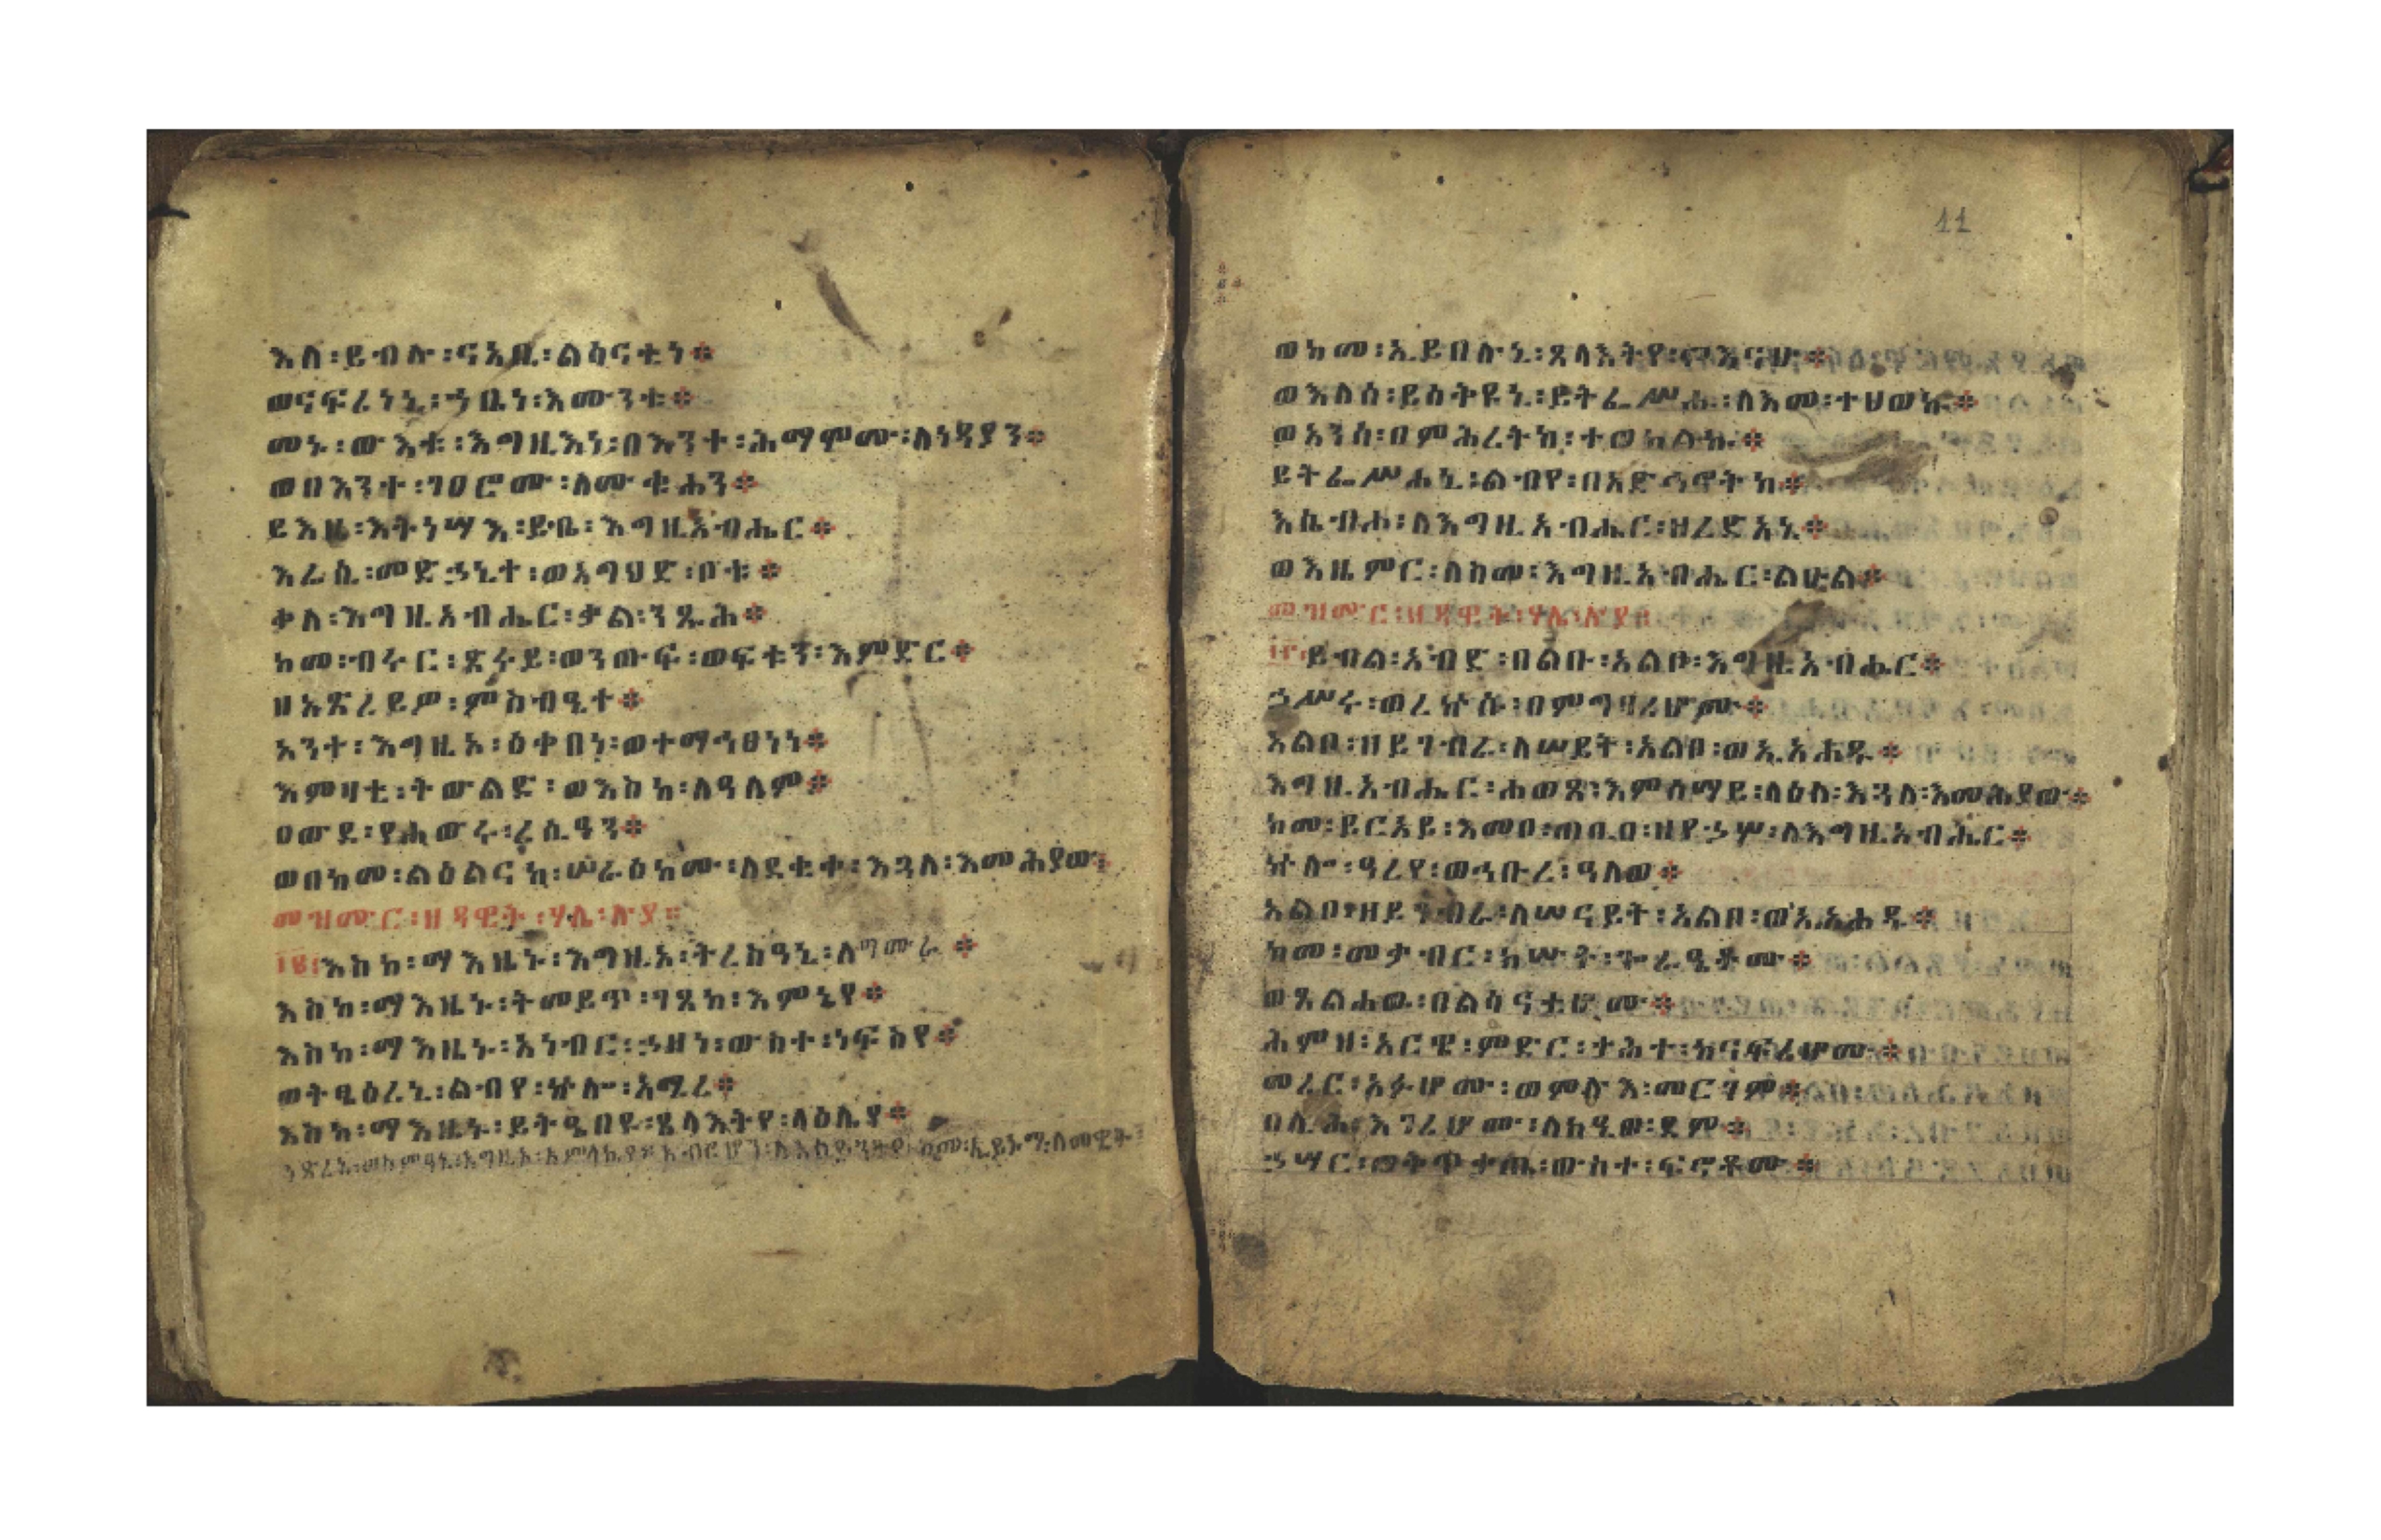 እለ፡ይብሉ፡ናአቢ፡ልሳናቲነ፨
ወናፍረነኒ፡ኀቤነ፡እሙንቱ፨
መኑ፡ውእቱ፡እግዚእነ፡በእንተ፡ሕማሞሙ፡ለነዳያን፨
ወበእንተ፡ገዐሮሙ፡ለሙቁሓን፨
ይእዜ፡እትነሣእ፡ይቤ፡እግዚአብሔር፨
እሬሲ፡መድኃኒተ፡ወአግህድ፡ቦቱ፨
ቃለ፡እግዚአብሔር፡ቃል፡ንጹሕ፨
ከመ፡ብሩር፡ጽሩይ፡ወንጡፍ፡ወፍቱን፡እምድር፨
ዘአጽረይዎ፡ምስብዒተ፨
አንተ፡እግዚኦ፡ዕቀበነ፡ወተማኅፀነነ፨
እምዛቲ፡ትውልድ፡ወእስከ፡ለዓለም፨
ዐውደ፡የሐውሩ፡ረሲዓን፨
ወበከመ፡ልዕልናከ፡ሠራዕኮሙ፡ለደቂቀ፡እጓለ፡እመሕያው፨
መዝሙር፡ዘዳዊት፡ሃሌ፡ሉያ፨
፲፪፡እስከ፡ማእዜኑ፡እግዚኦ፡ትረስዓኒ፡ለግሙራ፨
እስከ፡ማእዜኑ፡ትመይጥ፡ገጸከ፡እምኔየ፨
እስከ፡ማእዜኑ፡አነብር፡ኃዘነ፡ውስተ፡ነፍስየ፨
ወትጼዕረኒ፡ልብየ፡ኵሎ፡አሚረ፨
እስከ፡ማእዜኑ፡ይትዔበዩ፡ጸላእትየ፡ላዕሌየ፨
ነጽረኒ፡ወስምዓኒ፡እግዚኦ፡አምላኪየ፡አብርሆን፡ለአዕይንትየ፡ከመ፡ኢይኑማ፡ለመዊት፡
ወከመ፡ኢይበሉኒ፡ጸላእትየ፡ሞእናሁ፨
ወእለሰ፡ይሳቅዩኒ፡ይትፌሥሑ፡ለእመ፡ተሀወኩ፨
ወአንሰ፡በምሕረትከ፡ተወከልኩ፨
ይትፌሥሐኒ፡ልብየ፡በአድኅኖትከ፨
እሴብሖ፡ለእግዚአብሔር፡ዘረድአኒ፨
ወእዜምር፡ለስመ፡እግዚአብሔር፡ልዑል፨
መዝሙር፡ዘዳዊት፡ሃሌ፡ሉያ፨
፲፫፡ይብል፡አብድ፡በልቡ፡አልቦ፡እግዚአብሔር፨
ኃሥሩ፡ወረኵሱ፡በምግባሪሆሙ፨
አልቦ፡ዘይገብራ፡ለሠናይት፡አልቦ፡ወኢአሐዱ፨
እግዚአብሔር፡ሐወጸ፡እምሰማይ፡ላዕለ፡እጓለ፡እመሕያው፨
ከመ፡ይርአይ፡እመቦ፡ጠቢበ፡ዘየኃሦ፡ለእግዚአብሔር፨
ኵሉ፡ዓረየ፡ወኅቡረ፡ዓለወ፨
አልቦ፡ዘይገብራ፡ለሠናይት፡አልቦ፡ወኢአሐዱ፨
ከመ፡መቃብር፡ክሡት፡ጐራዒቶሙ፨
ወጸልሐዉ፡በልሳናቲሆሙ፨
ሕምዘ፡አርዌ፡ምድር፡ታሕተ፡ከናፍሪሆሙ፨
መሪር፡አፉሆሙ፡ወምሉእ፡መርገም፨
በሊሕ፡እገሪሆሙ፡ለክዒወ፡ደም፨
ኃሣር፡ወቅጥቃጤ፡ውስተ፡ፍኖቶሙ፨